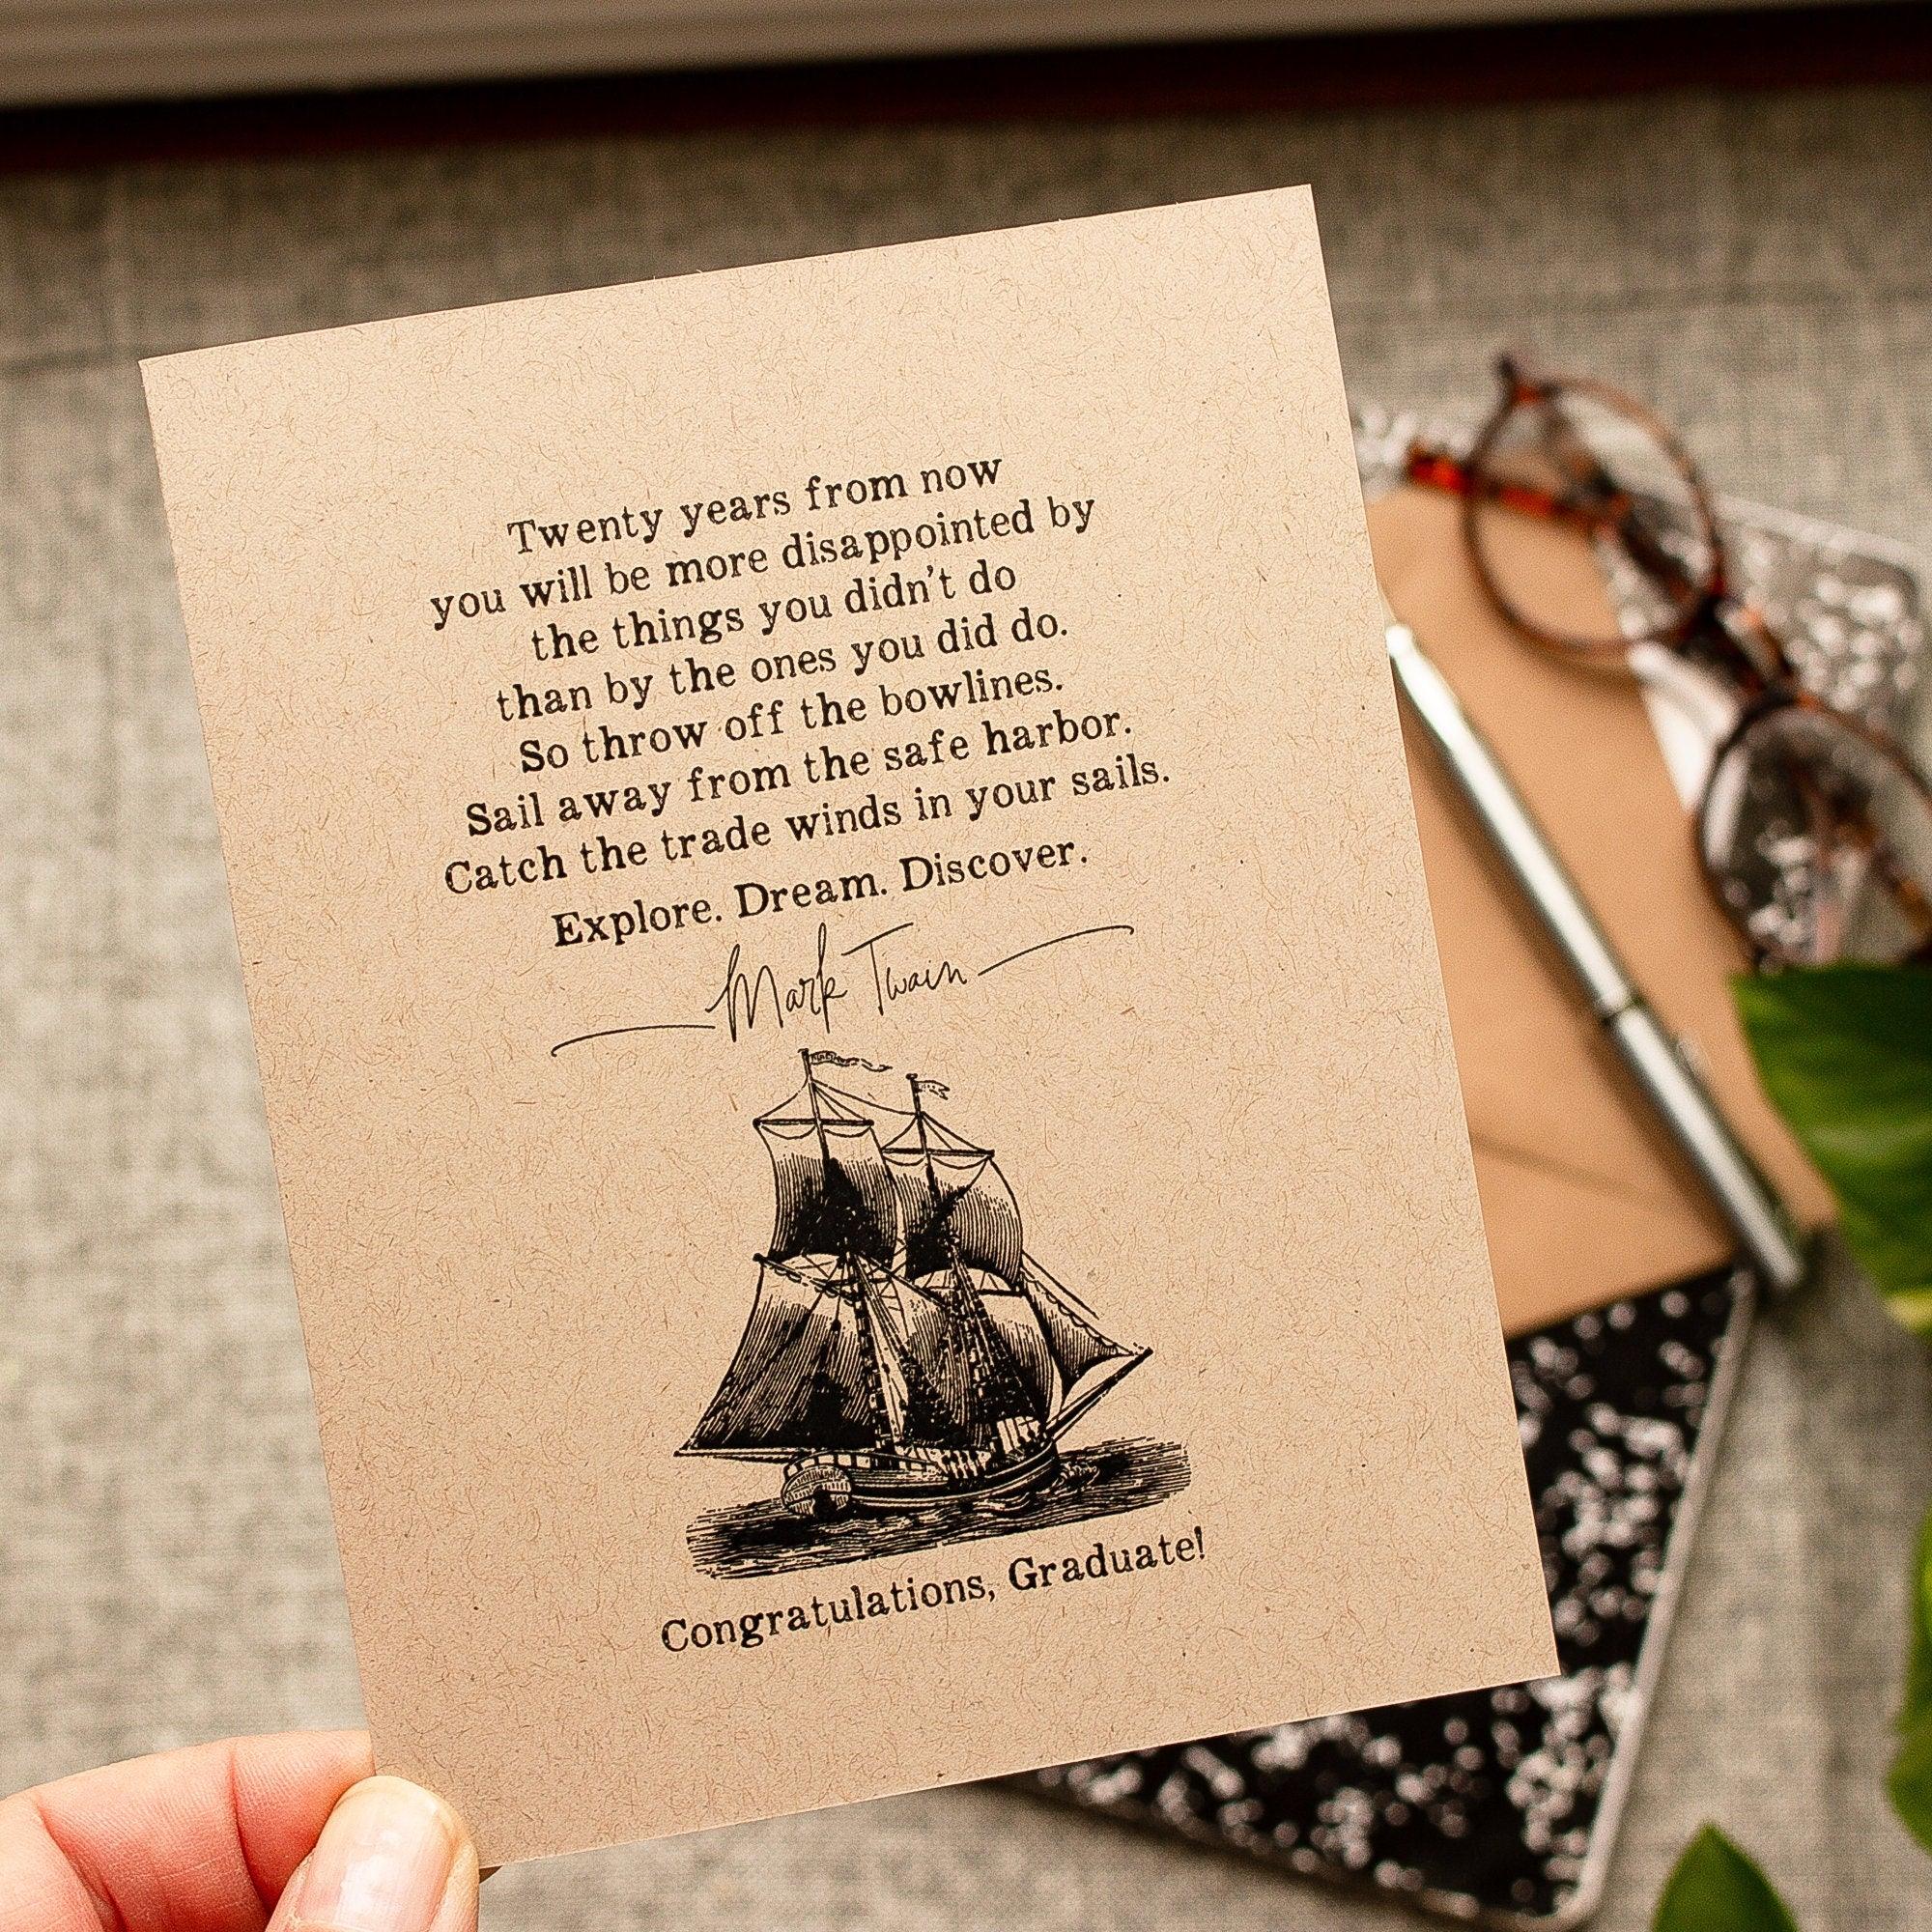 Twenty years from now
you will be more disappointed by
the things you didn't do
than by the ones you did do.
So throw off the bowlines.
Sail away from the safe harbor.
Catch the trade winds in your sails.
Explore. Dream. Discover.
Mark Twain
Congratulations, Graduate!